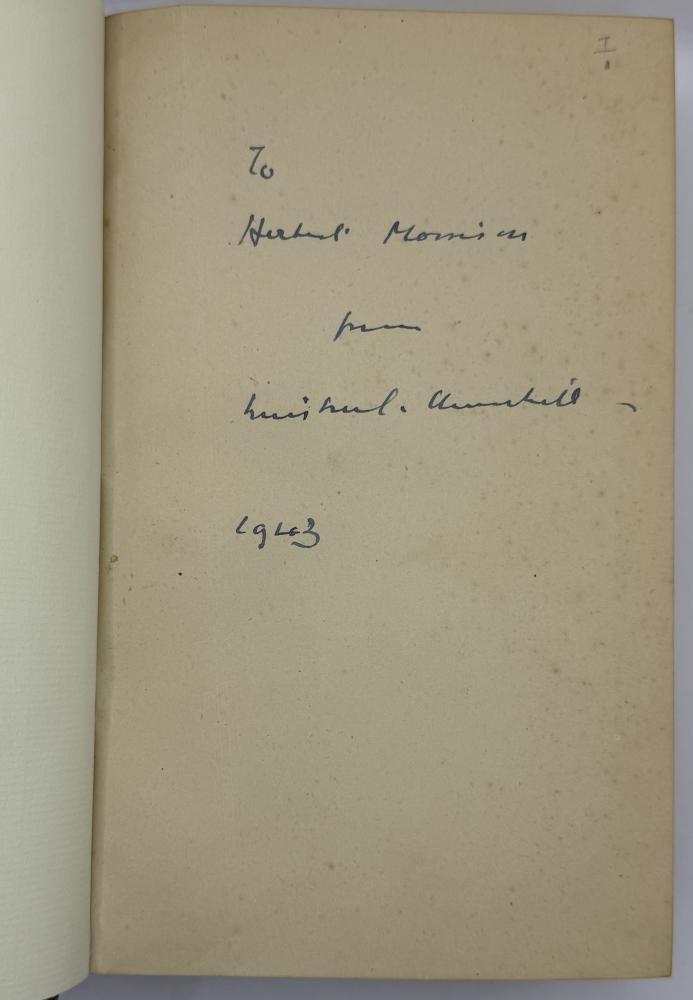 I
To
Herbert Morrison
from
Winston S. Churchill
1943